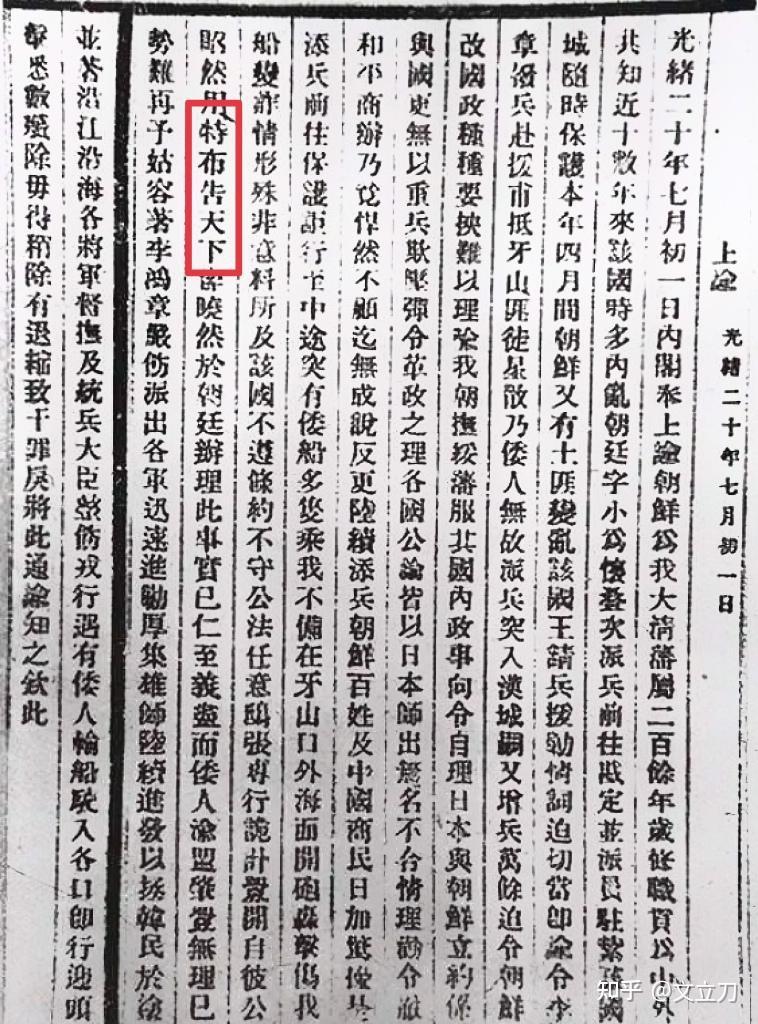 上諭 光緒二十年七月初一日
光緒二十年七月初一日內閣奉上諭朝鮮爲我大清藩屬二百餘年歲修職貢爲中外
共知近十數年來該國時多內亂朝廷字小爲懷疊次派兵前往戡定並派員駐紮該國
城隨時保護本年四月間朝鮮又有土匪變亂該國王請兵援勦情詞迫切當卽諭令李
章撥兵赴援甫抵牙山匪徒星散乃倭人無故派兵突入漢城嗣又增兵萬餘迫令朝鮮
改國政種種要挾難以理喻我朝撫綏藩服其國內政事向令自理日本與朝鮮立約係
與國更無以重兵欺壓彊令革政之理各國公論皆以日本師出無名不合情理勸令撤
和平商辦乃竟悍然不顧迄無成說反更陸續添兵朝鮮百姓及中國商民日加驚擾是
添兵前往保護詎行至中途突有倭船多隻乘我不備在牙山口外海面開砲轟擊傷我
船變詐情形殊非意料所及該國不遵條約不守公法任意鴟張專行詭計釁開自彼公
昭然用特布告天下俾曉然於朝廷辦理此事實已仁至義盡而倭人渝盟肇釁無理已
勢難再予姑容著李鴻章嚴飭派出各軍迅速進勦厚集雄師陸續進發以拯韓民於塗
並著沿江沿海各將軍督撫及統兵大臣整飭戎行遇有倭人輪船駛入各口卽行迎頭
擊悉數殲除毋得稍除有退縮致干罪戾將此通諭知之欽此
知乎 @文立刀